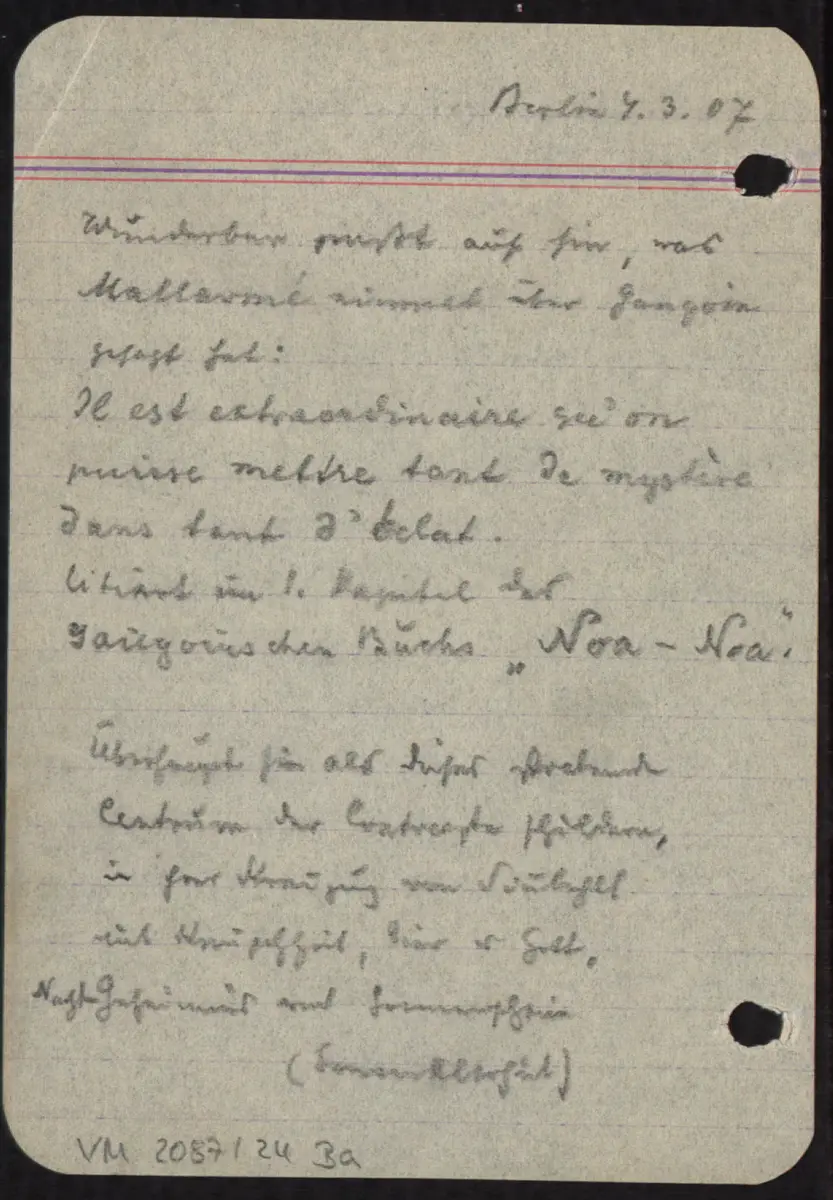 Berlin 4. 3. 07
Wunderbar paßt auf sie, was
Mallarmé einmal über Gauguin
gesagt hat:
Il est extraordinaire qu'on
puisse mettre tant de mystère
dans tant d'éclat.
Citiert im 1. Kapitel des
Gauguinschen Buchs „Noa-Noa".
Überhaupt sie als dieses
Centrum der Contraste schildern,
in ihrer Kreuzung von
mit Keuschheit, Tier u Gott,
Nacht-Geheimnis und Sonnenschein
VM 2087/24 Ba